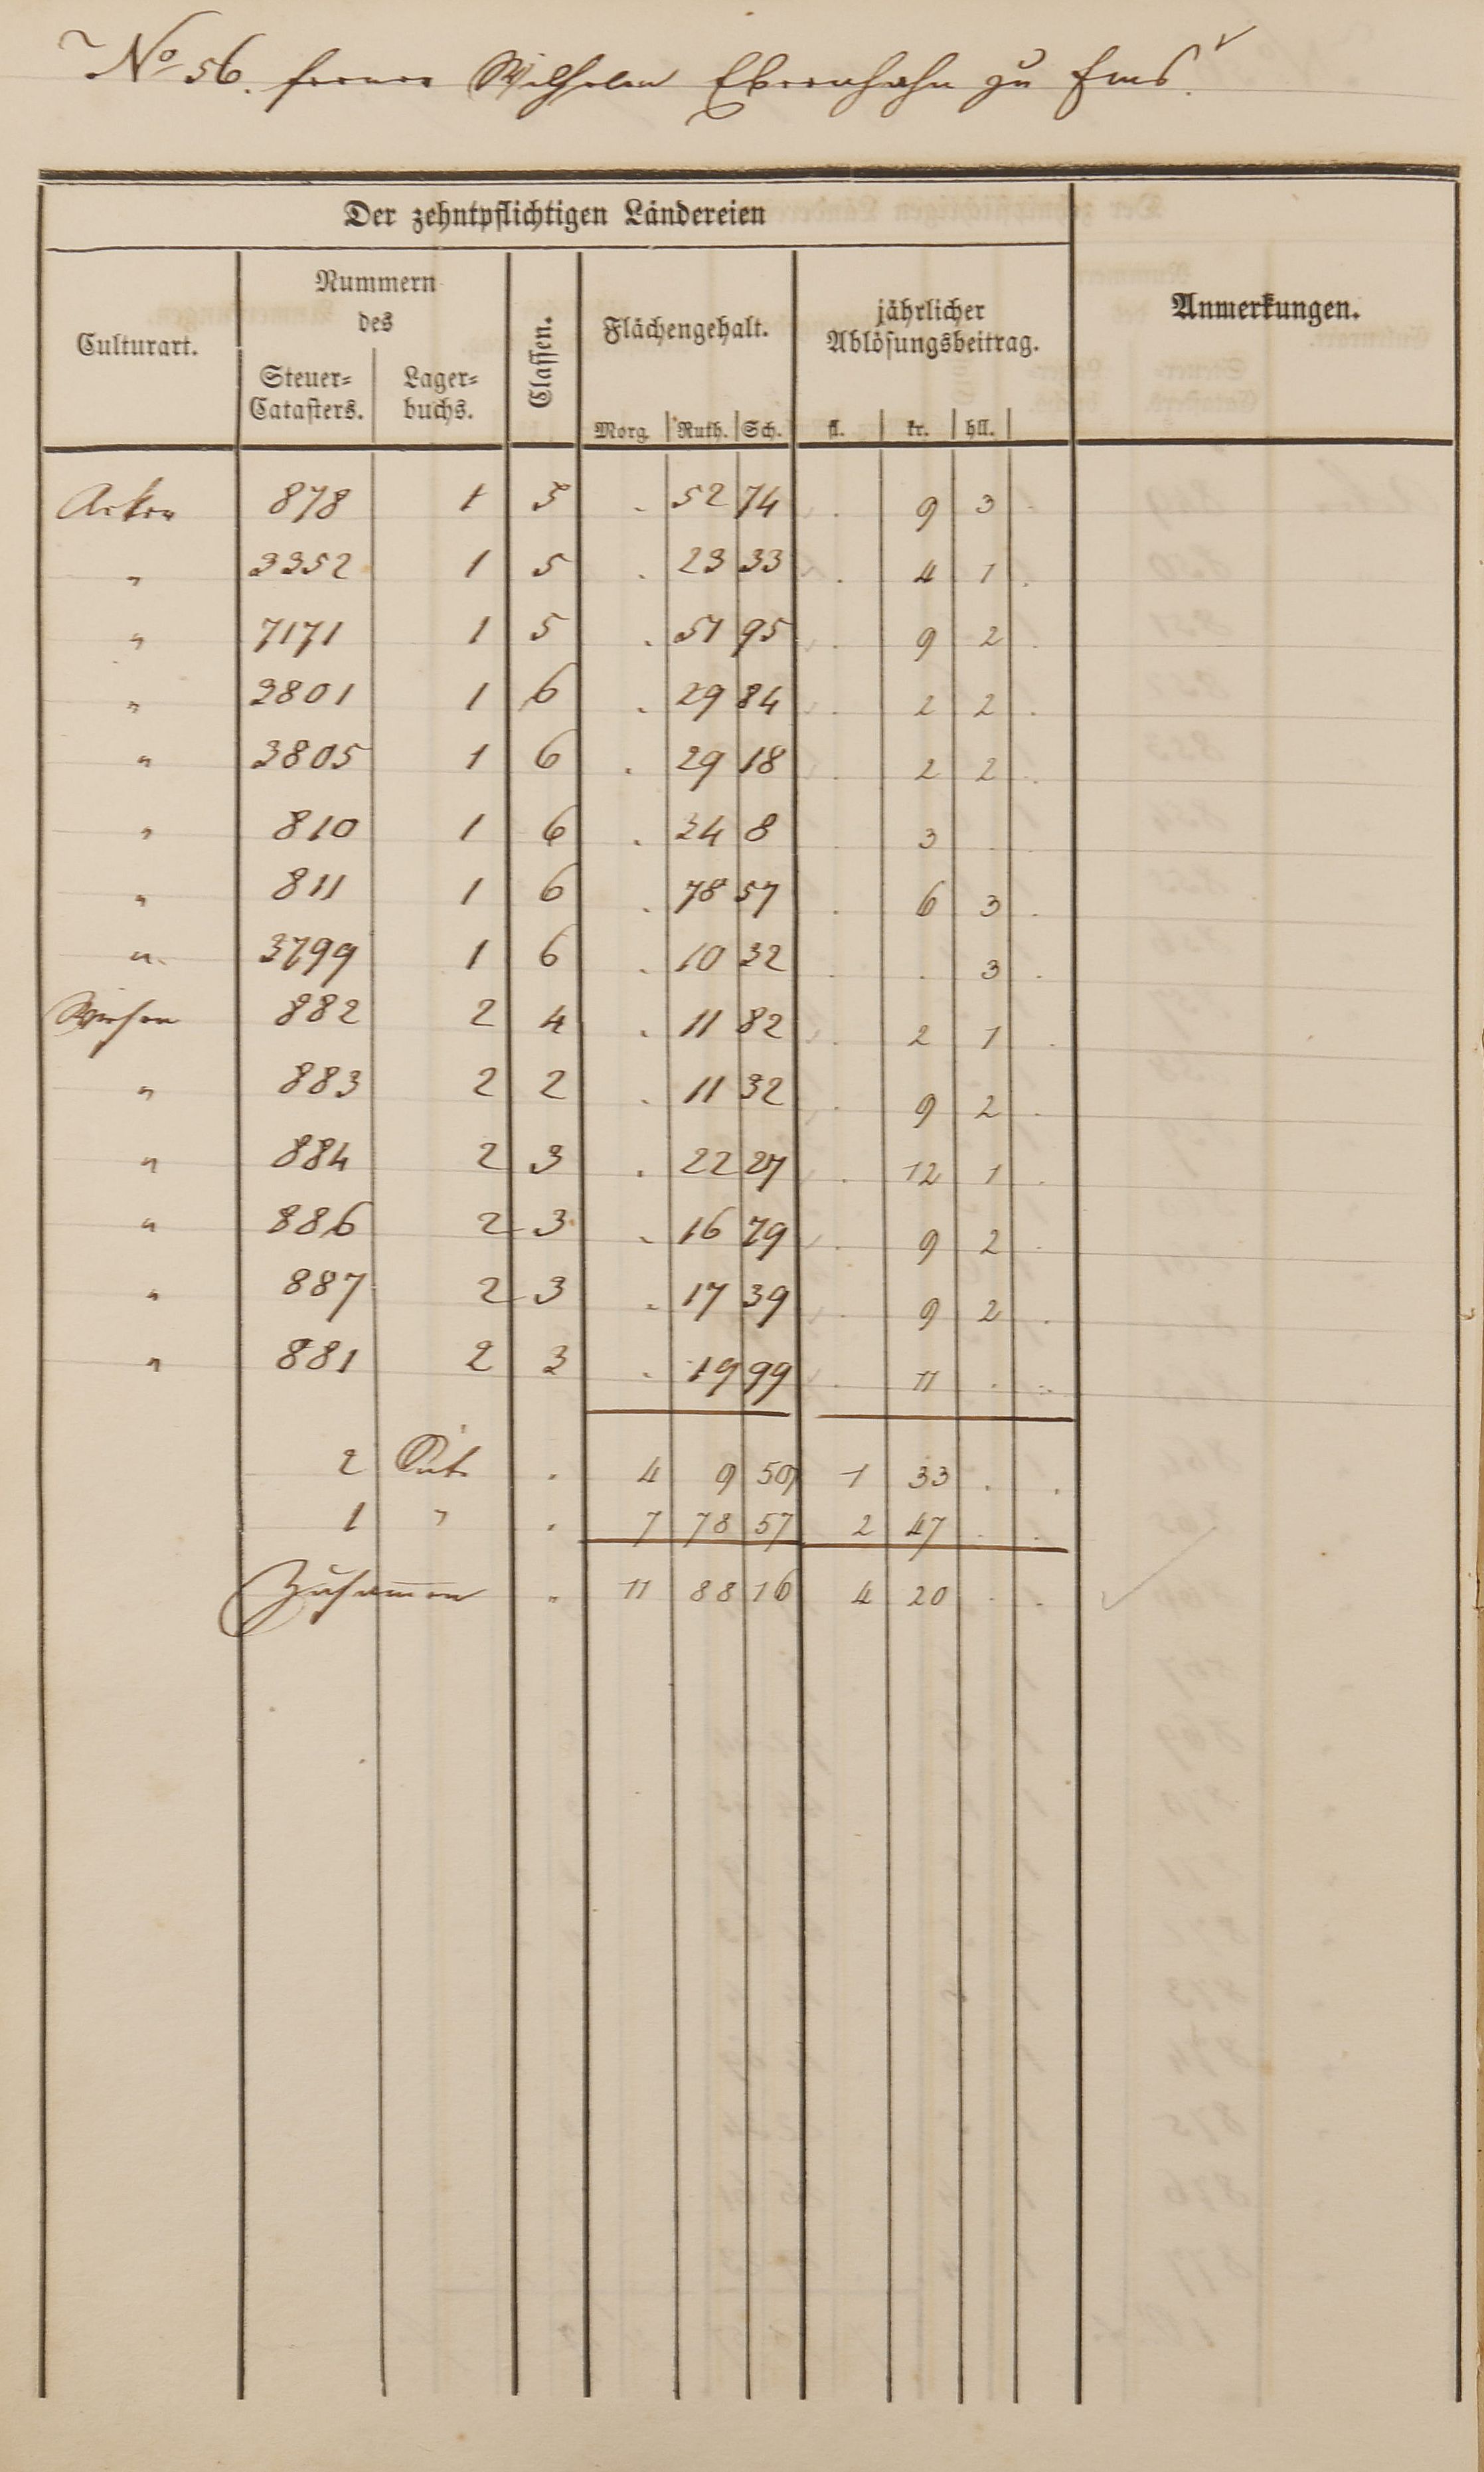 No 56. ferner Wilhelm Ebernhahn zu Ems.
Der zehntpflichtigen Ländereien
Culturart.
Nummern des
Steuer-Catasters.
Lager-buchs.
Classen.
Flächengehalt.
Morg. Ruth. Sch.
jährlicher Ablösungsbeitrag.
fl. kr. hll.
Anmerkungen.
Acker 878 1 5 . 52 74 . 9 3 .
" 3352 1 5 . 23 33 . 4 1 .
" 7171 1 5 . 51 95 . 9 2 .
" 3801 1 6 . 29 84 . 2 2 .
" 3805 1 6 . 29 18 . 2 2 .
" 810 1 6 . 34 8 . 3 . .
" 811 1 6 . 78 57 . 6 3 .
" 3799 1 6 . 10 32 . . 3 .
Wiesen 882 2 4 . 11 82 . 2 1 .
" 883 2 2 . 11 32 . 9 2 .
" 884 2 3 . 22 27 . 12 1 .
" 886 2 3 . 16 79 . 9 2 .
" 887 2 3 . 17 39 . 9 2 .
" 881 2 3 . 19 99 . 11 . .
2 Seite . 4 9 59 1 33 . .
1 " . 7 78 57 2 47 . .
Zusammen " 11 88 16 4 20 . .